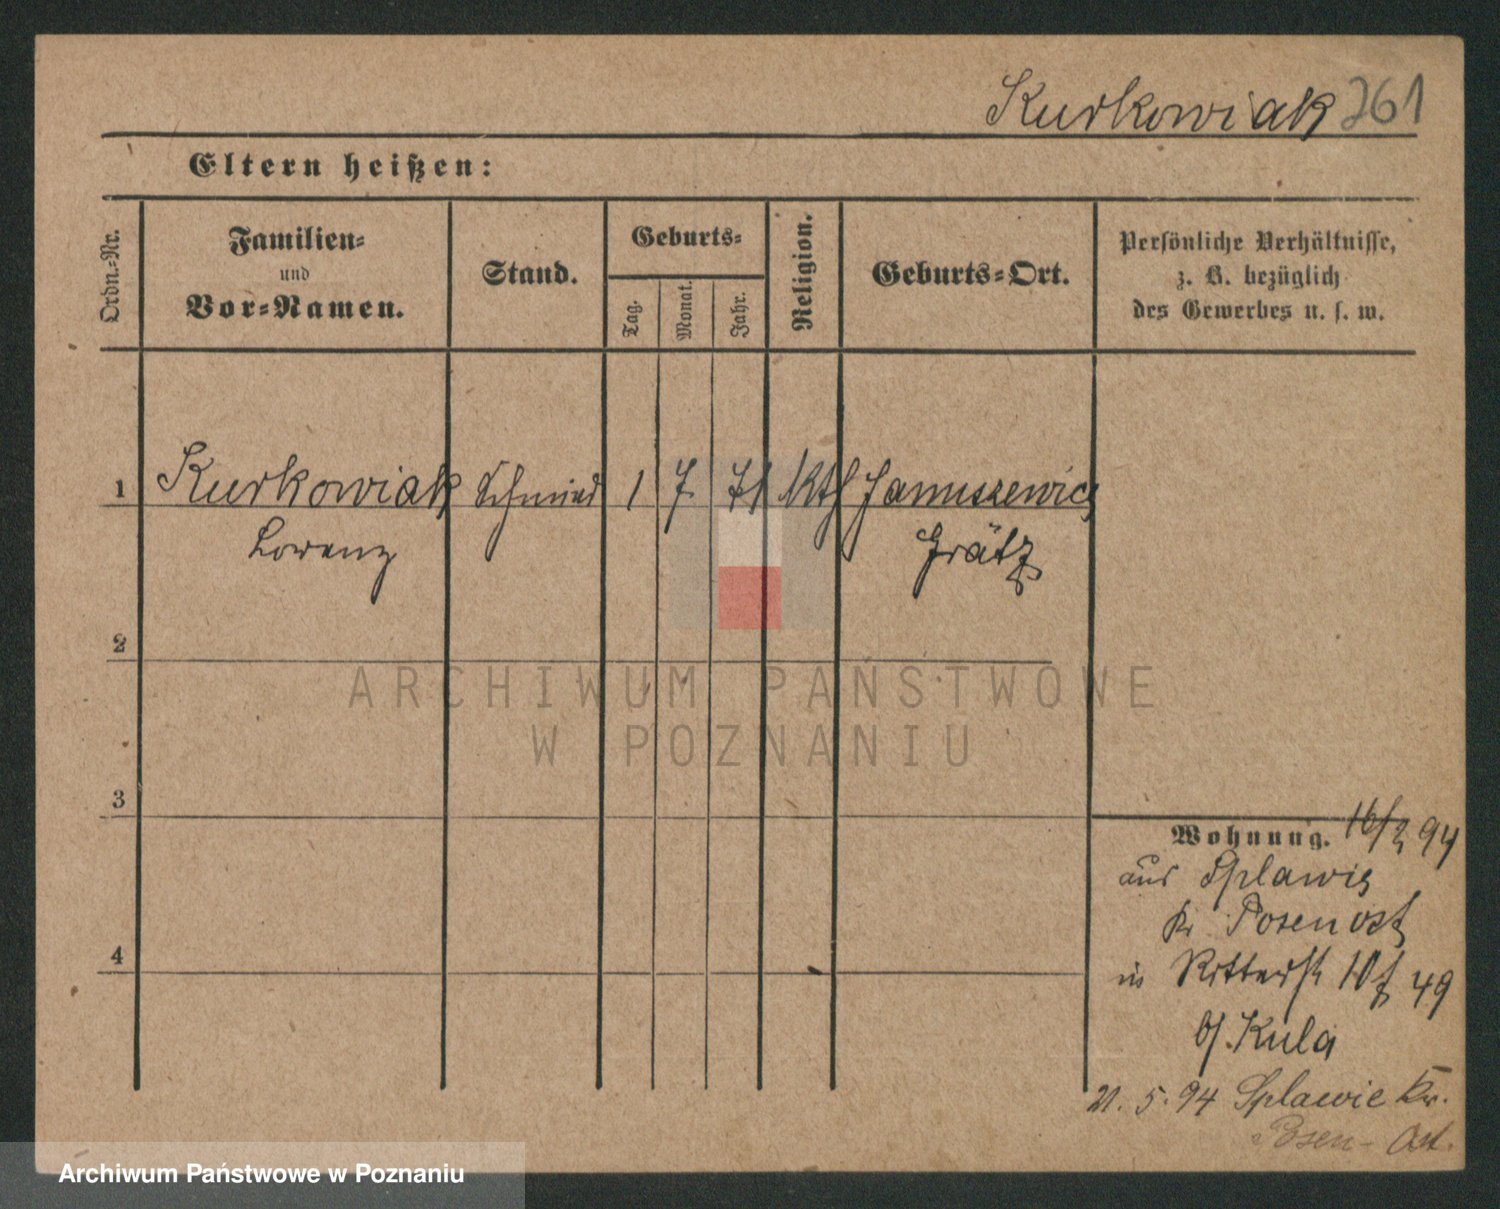 Kurkowiak 261
Eltern heißen:
Ordn.-Nr.
Familien-
und
Vor-Namen.
Stand.
Geburts-
Tag.
Monat.
Jahr.
Religion.
Geburts-Ort.
Persönliche Verhältnisse,
z. B. bezüglich
des Gewerbes u. s. w.
1 Kurkowiak Schmied 1 7 71 Kth Januszewice
Lorenz Grätz
2
3
4
Wohnung. 16/2 94
aus Splawie
Kr Posen ost
in Ritterstr 49
b/ Kula
21. 5. 94 Splawie Kr.
Posen-Ost.
ARCHIWUM PAŃSTWOWE
W POZNANIU
Archiwum Państwowe w Poznaniu